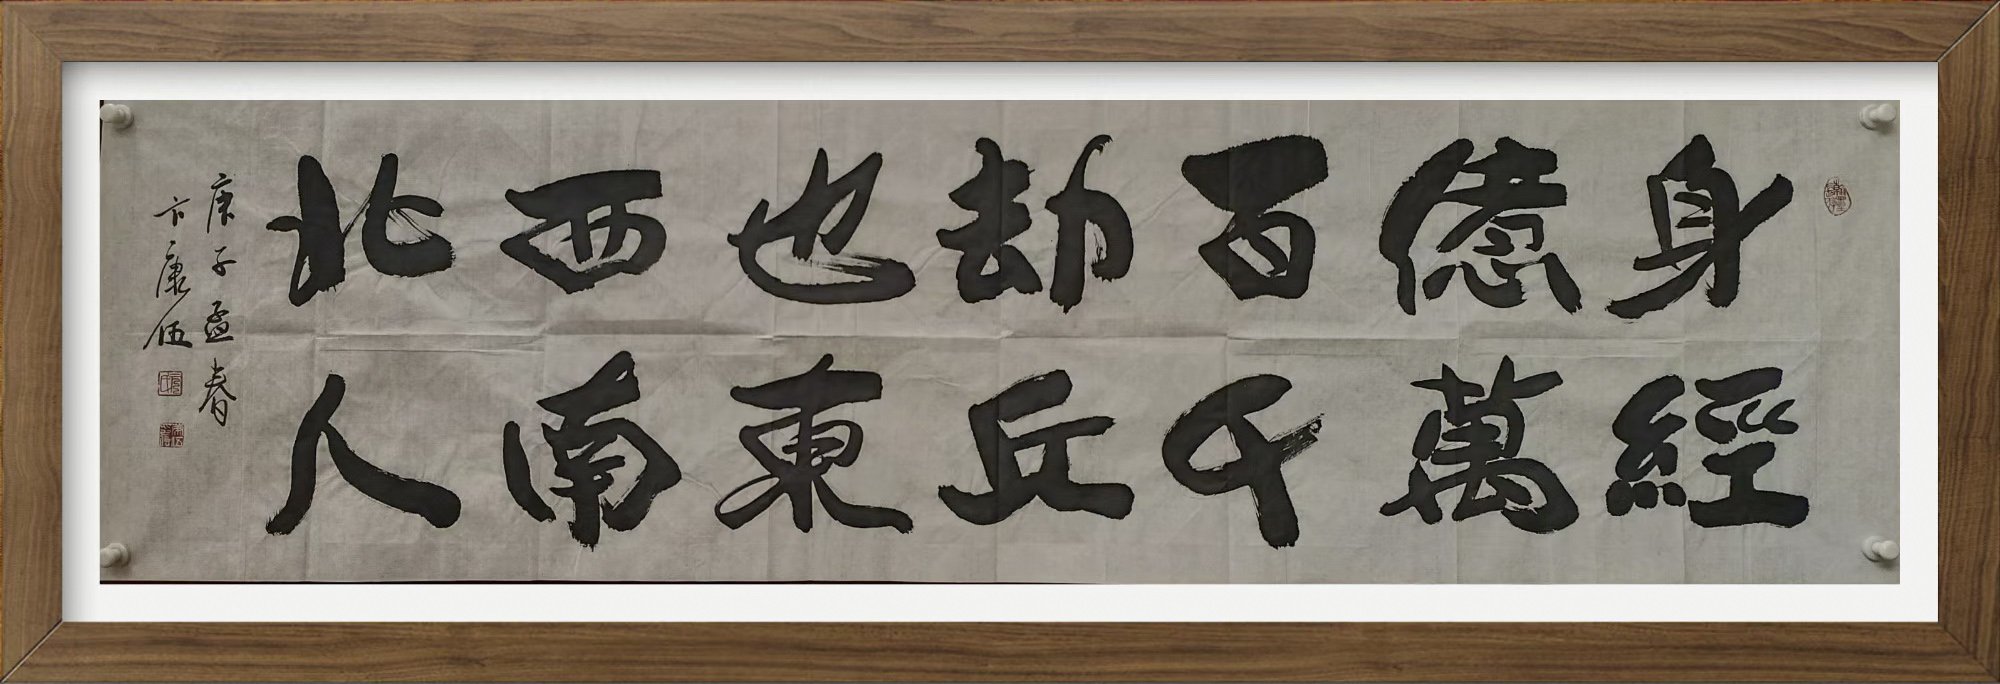 身經
億萬
百千
劫丘
也東
西南
北人
庚子孟春
卞康伍